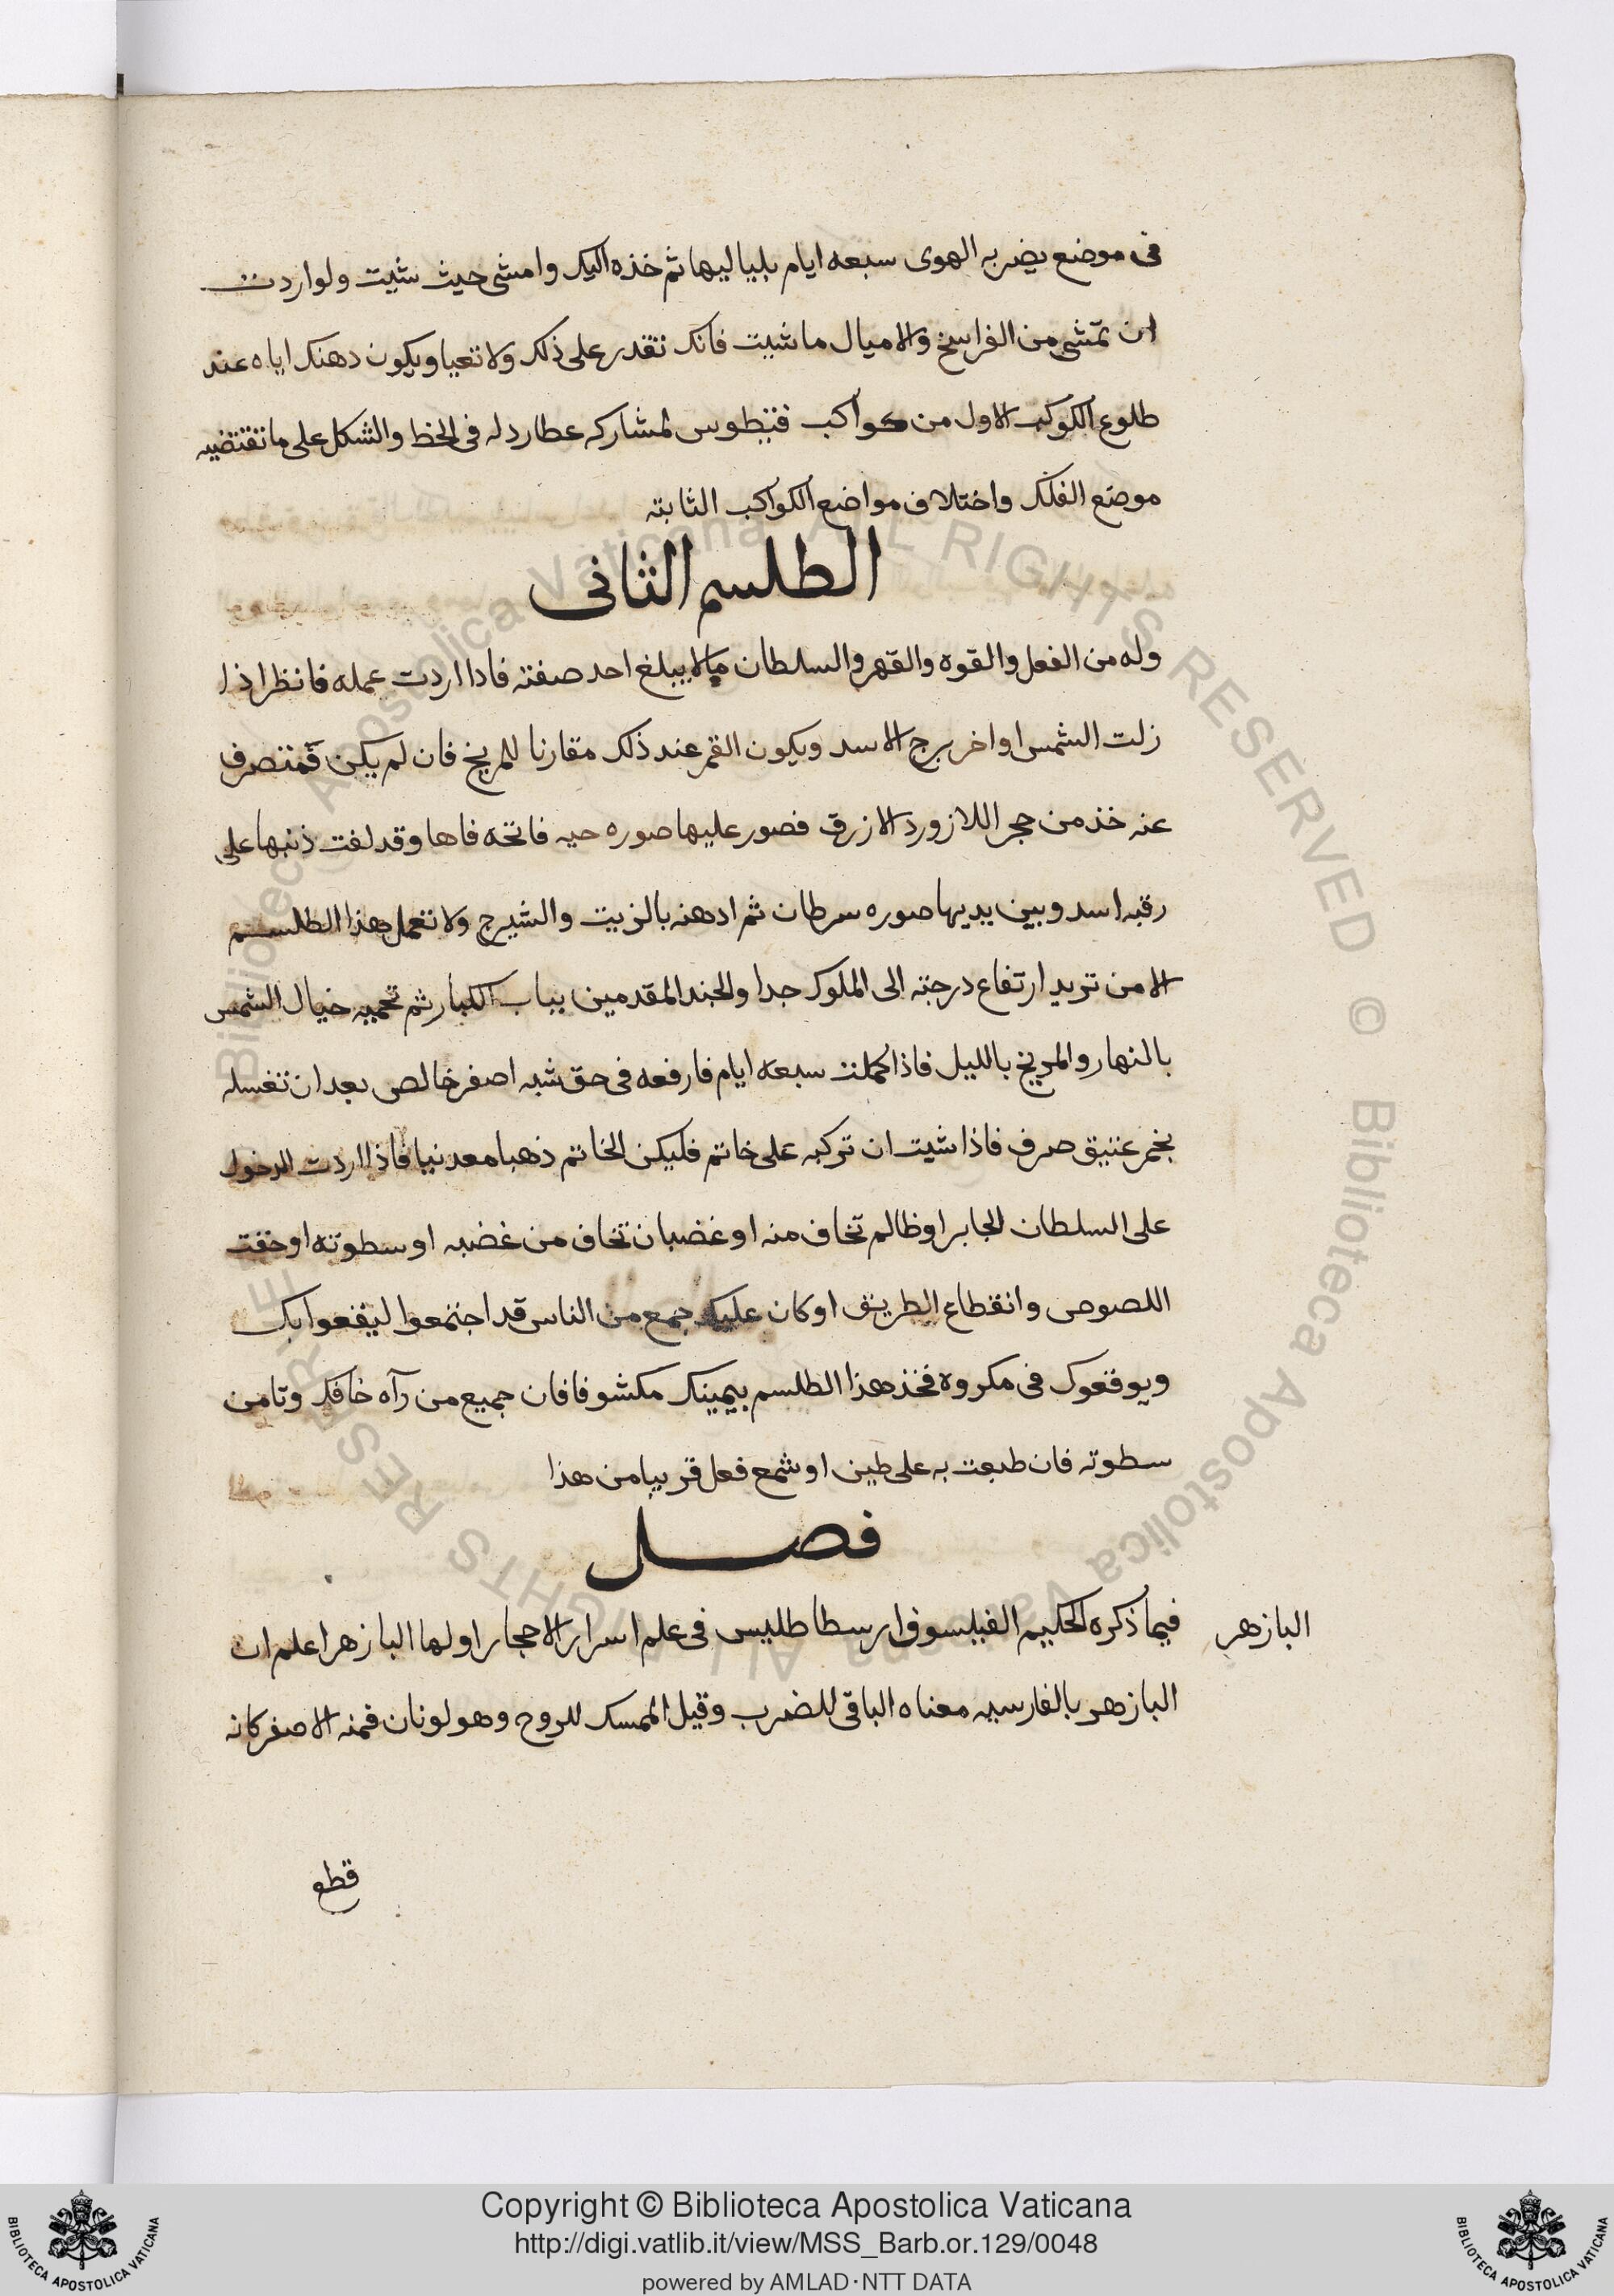 فى موضع يضربه الهوى سبعه ايام بلياليها ثم خذه اليك وامشى حيث شيت ولو اردت
ان تمشى من الفراسخ والاميال ما شيت فانك تقدر على ذلك ولا تعيا ويكون دهنك اياه عند
طلوع الكوكب الاول من كواكب قنطوس لمشاركه عطارد له فى الخط والشكل على ما تقتضيه
موضع الفلك واختلاف مواضع الكواكب الثابته
الطلسم الثانى
وله من الفعل والقوه والقهر والسلطان مالا يبلغ احد صفته فاذا اردت عمله فانظر اذا
زلت الشمس اواخر برج الاسد ويكون القمر عند ذلك مقارنا للمريخ فان لم يكن فمنصرف
عنه خذ من حجر اللازورد الازرق فصور عليها صوره حيه فاتحه فاها وقد لفت ذنبها على
رقبه اسد وبين يديها صوره سرطان ثم ادهنه بالزيت والشيرج ولا تعمل هذا الطلسم
الا من تريد ارتفاع درجته الى الملوك جدا والجند المقدمين بباب الكبار ثم تحميه خيال الشمس
بالنهار والمريخ بالليل فاذا كملت سبعه ايام فارفعه فى حق شبه اصفر خالص بعد ان تغسله
بخمر عتيق صرف فاذا شيت ان تركبه على خاتم فليكن الخاتم ذهبا معدنيا فاذا اردت الدخول
على السلطان الجابر او ظالم تخاف منه او غضبان تخاف من غضبه او سطوته او خفت
اللصوص وانقطاع الطريق او كان عليك جمع من الناس قد اجتمعوا ليقعوا بك
ويوقعوك فى مكروه فخذ هذا الطلسم بيمينك مكشوفا فان جميع من رآه خافك وتامن
سطوته فان طبعت به على طين او شمع فعل قريبا من هذا
فصل
البازهر
فيما ذكره الحكيم الفيلسوف ارسطاطليس فى علم اسرار الاحجار اولها البازهر اعلم ان
البازهر بالفارسيه معناه الباقى للضرب وقيل الممسك للروح وهو لونان فمنه الاصفر كانه
قطع
Copyright © Biblioteca Apostolica Vaticana
http://digi.vatlib.it/view/MSS_Barb.or.129/0048
powered by AMLAD·NTT DATA